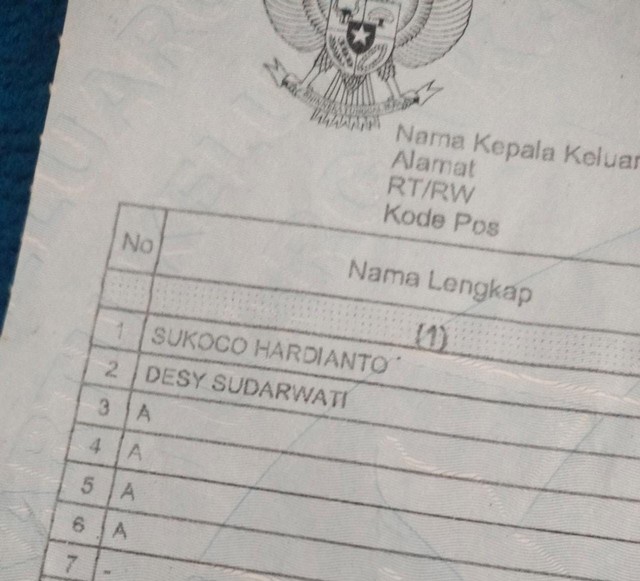 Nama Kepala Keluar
Alamat
RT/RW
Kode Pos
No Nama Lengkap
(1)
1 SUKOCO HARDIANTO
2 DESY SUDARWATI
3 A
4 A
5 A
6 A
7 -